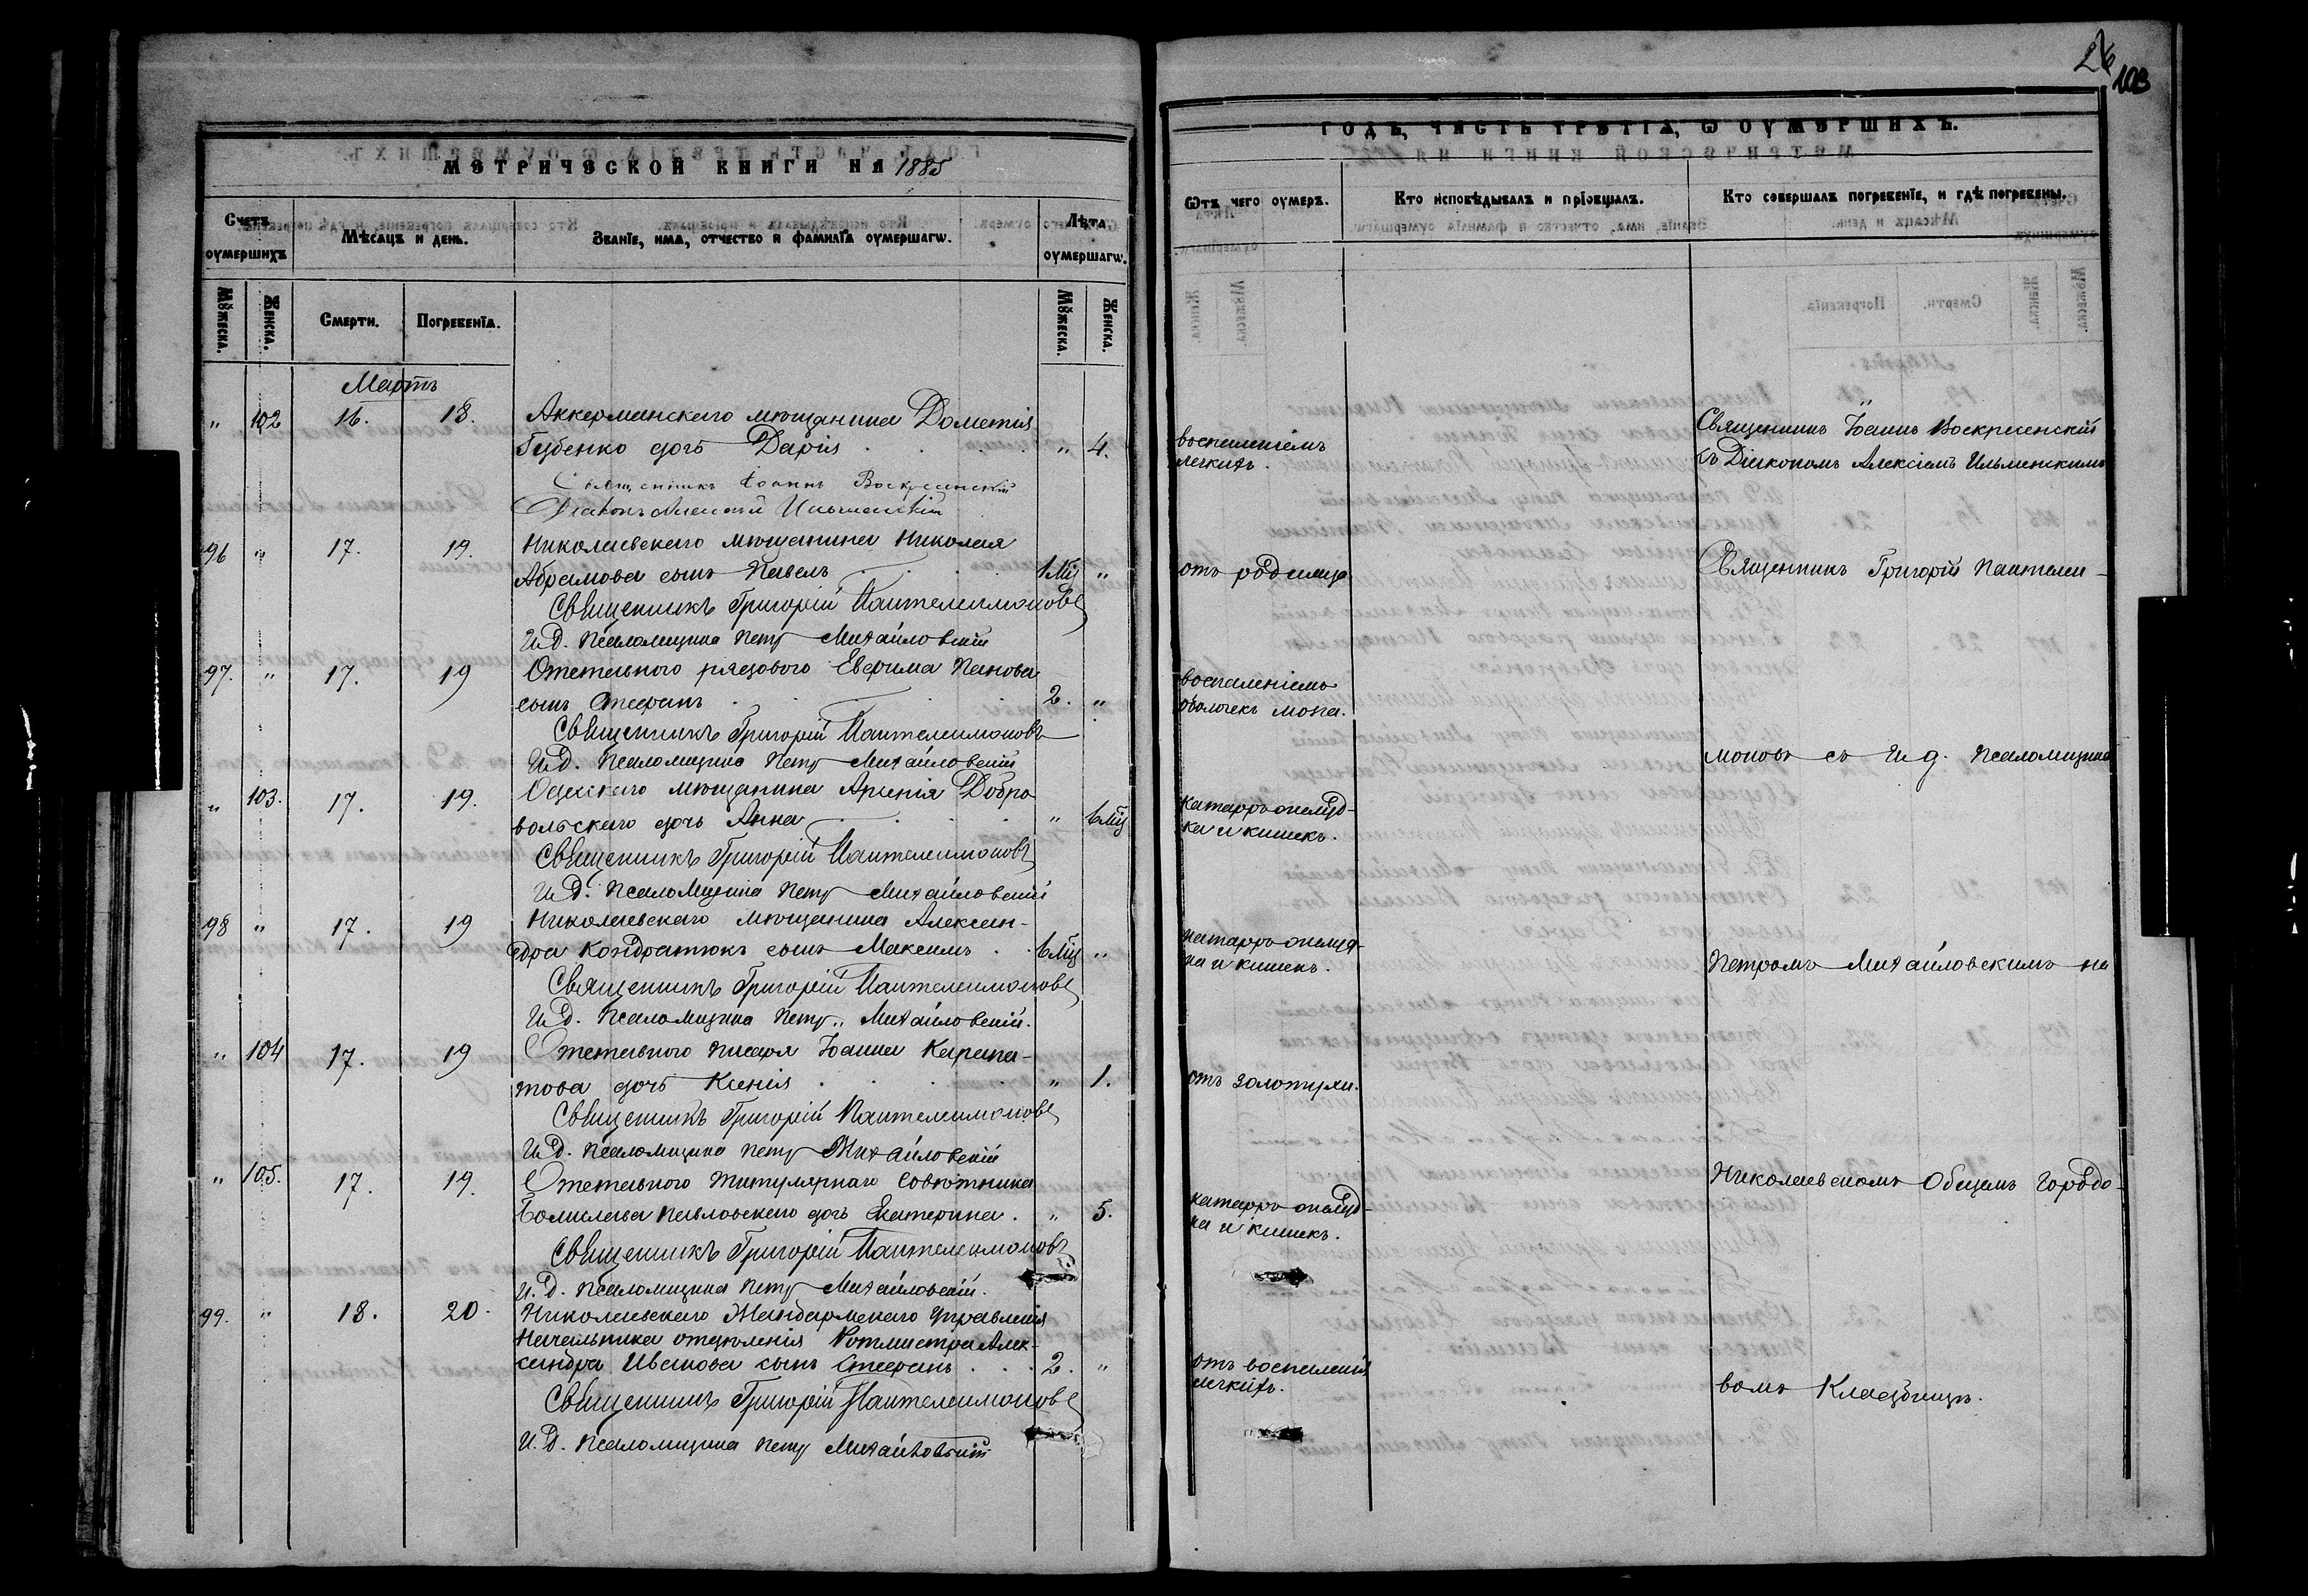 26
103
МЕТРИЧЕСКОЙ КНИГИ НА 1885
Счетъ оумершихъ
Мѣсяцъ и день.
Званїе, имя, отчество и фамилїя оумершагѡ.
Лѣта оумершагѡ.
Мꙋжеска.
Женска.
Смерти.
Погребенїя.
Мꙋжеска.
Женска.
Мартъ
" 102 16. 18. Аккерманскаго мѣщанина Дометія
Губенко дочь Дарія " 4.
Священникъ Іоаннъ Воскресенскій
Діаконъ Алексій Ильменскій
96 " 17. 19. Николаевскаго мѣщанина Николая
Абрамова сынъ Павелъ 1 мц "
Священникъ Григорій Пантелеимоновъ
И.д. Псаломщика Петр Михайловскій
97. " 17. 19 Отставного рядового Евфима Панова
сынъ Стефанъ 2. "
Священникъ Григорій Пантелеимоновъ
И.д. Псаломщика Петр Михайловскій
" 103. 17. 19. Одесскаго мѣщанина Арсенія Добро
вольскаго дочь Анна " 6 мц
Священникъ Григорій Пантелеимоновъ
И.д. Псаломщика Петр Михайловскій
98 " 17. 19 Николаевскаго мѣщанина Алексан-
дра Кондратюкъ сынъ Максимъ 6 мц "
Священникъ Григорій Пантелеимоновъ
И.д. Псаломщика Петр Михайловскій.
" 104 17. 19 Отставного писаря Іоанна Карпа-
това дочь Ксенія " 1.
Священникъ Григорій Пантелеимоновъ
И.д. Псаломщика Петр Михайловскій
" 105. 17. 19. Отставного Титулярнаго Совѣтника
Болислава Павловскаго дочь Екатерина. " 5.
Священникъ Григорій Пантелеимоновъ
И.д. Псаломщика Петр Михайловскій.
99. " 18. 20. Николаевскаго Жандармскаго Управленія
Начальника отдѣленія Ротмистра Алек-
сандра Иванова сынъ Стефанъ 2. "
Священникъ Григорій Пантелеимоновъ
И.д. Псаломщика Петр Михайловскій
ГОДЪ, ЧАСТЬ ТРЕТІѦ, Ѡ ОУМЕРШИХЪ.
Ѿтъ чего оумеръ.
Кто исповѣдывалъ и прїобщалъ.
Кто совершалъ погребенїе, и гдѣ погребены.
воспаленіемъ
легкихъ.
Священникъ Іоаннъ Воскресенскій
съ Діакономъ Алексіемъ Ильменскимъ
отъ родимца
Священникъ Григорій Пантелеи-
воспаленіемъ
оболочекъ мозга.
моновъ съ И.д. Псаломщика
катарръ желуд-
ка и кишекъ.
катарръ желуд-
ка и кишекъ.
Петромъ Михайловскимъ на
отъ золотухи.
Николаевскомъ Общемъ Городо-
катарръ желуд-
ка и кишекъ.
отъ воспаленія
легкихъ.
вомъ Кладбищѣ.